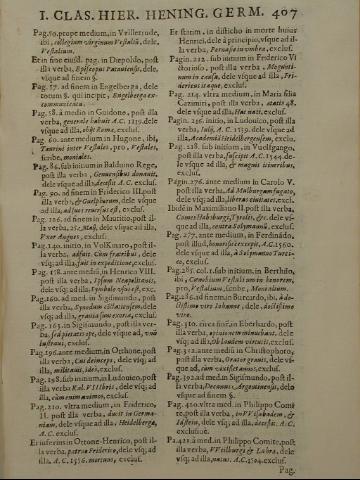 I. CLAS. HIER. HENING. GERM. 407
Pag. 50. prope medium, in Vrillerrude,
ibi, collegium virginum Vestalium, dele,
Vestalium.
Et in fine eiusd. pag. in Diepoldo, post
illa verba, Episcopus Patauiensis, dele,
vsque ad finem §.
Pag. 57. ad finem in Engelberga, dele
totum §. qui incipit, Engelberga excommunicata.
Pag. 58. à medio in Guidone, post illa
verba, generalis habuit A.C. dele, vsque
ad illa, obijt Romæ. exclus.
Pag. 60. ante medium in Hugone, ibi,
Taurini inter Vestales, pro, Vestales,
scribe, moniales.
Pag. 84. sub initium in Balduino Rege,
post illa verba, Genuensibus donauit,
dele vsque ad illa, decessit A.C. exclus.
Pag. 90. ad finem in Friderico III. post
illa verb. & Guelphorum, dele vsque
ad illa, ad suos reuersus est, exclus.
Pag. 106. ad finem in Mauritio, post illa
verba, 25. Maij, dele vsque ad illa,
Vxor Augusti, exclus.
Pag. 140. initio, in Volkmaro, post illa
verba, adfuit. Cum fratribus, dele,
vsq; ad illa, fuit in expeditione, exclus.
Pag. 158. ante mediũ, in Henrico VIII.
post illa verba, Ipsum Neapolitanis,
dele vsq; ad illa, Symbolũ ipsi est, exc.
Pag. 160. ad med. in Sigismundo, post
illa verba, Synodum Constantiensem, dele
vsq; ad illa, grauissimus exorta, exclus.
Pag. 163. in Sigismundo, post illa verba,
sed pietate spe, dele vsque ad, vnà
lustrani, exclus.
Pag. 196. ante medium, in Otthone, post
illa verba, Cui deinceps, dele vsq; ad
illa, militauit, idẽ, exclus.
Pag. 198. sub initium, in Ludouico, post
illa verba Kal. VIIIbris, dele vsq; ad
illa, cùm enim animos, exclus.
Pag. 210. vltra medium, in Friderico
II. post illa verba, ducit in Germaniam,
dele vsque ad illa, Heidelberga,
A.C. exclus.
Et inferius in Otthone-Henrico, post illa
verba, patruo Friderico, dele vsq; ad
illa, A.C. 1556. mortuus, exclus.
Et statim, in disticho in morte huius
Henrici, dele à principio, vsque ad illa
verba, Peruasit in vmbra, exclus.
Pagin. 212. sub initium in Friderico VI
Victorioso, post illa verba, Moguntinum
in causa, dele vsque ad illa, Fridericus
itaque, exclus.
Pag. 214. vltra medium, in Maria filia
Cazimiri, post illa verba, ætatis 48.
dele vsque ad illa, Huc nati, exclus.
Pagin. 216. initio, in Ludouico, post illa
verba, Iulij, A.C. 1539. dele vsque ad
illa, Academiâ Heidelbergensem, exclus.
Pag. 228. sub initium, in Vuolfgango,
post illa verba, suscepit A.C. 1544. dele
vsque ad illa, & magnis itineribus,
exclus.
Pagin. 276. ante medium in Carolo V.
post illa verba, Ad Mulburgum fugato,
dele vsq; ad illa, liberas ciuitates, exclus.
Ibid. in Maximiliano II. post illa verba,
Comes Habsburgi, Tyrolis, &c. dele vsque
ad illa, contra Solymanum, exclus.
Pag. 277. ante medium, in Ferdinãdo,
post illud, honorificè excepit, A.C. 1560.
dele vsque ad illa, à Solymanno Turcico,
exclus.
Pag. 285. col. 1. sub initium, in Berthilo,
ibi, Coenobium Vestalium in honorem,
pro, Vestalium, scribe, Monialium.
Pag. 286. ad finem in Burcardo, ibi, à doctissimo
viro Iohanne, dele, doctissimo
viro.
Pag. 310. circa finẽ, in Eberhardo, post
illa verba, optauit vt minuisset, dele vsque
ad illa, Ob laudem virtutis, exclus.
Pag. 312. ante mediũ in Christophoro,
post illa verba, Orator grauis, dele vsque
ad, cùm vixisset annos, exclus.
Pag. 392. ad med. in Sigismundo, post illa
verba, Theonus, Argentinensis, dele
vsque ad finem §.
Pag. 420. vltra med. in Philippo Comite,
post illa verba, in VVisebaden, &
Idstein, dele vsq; ad illa, decessit A.C.
exclus.
Pa. 421. à med. in Philippo Comite, post
illa verba, VVeilburgi & Lahra, dele
vsq; ad illa, natus A.C. 1504. exclus.
Pag.